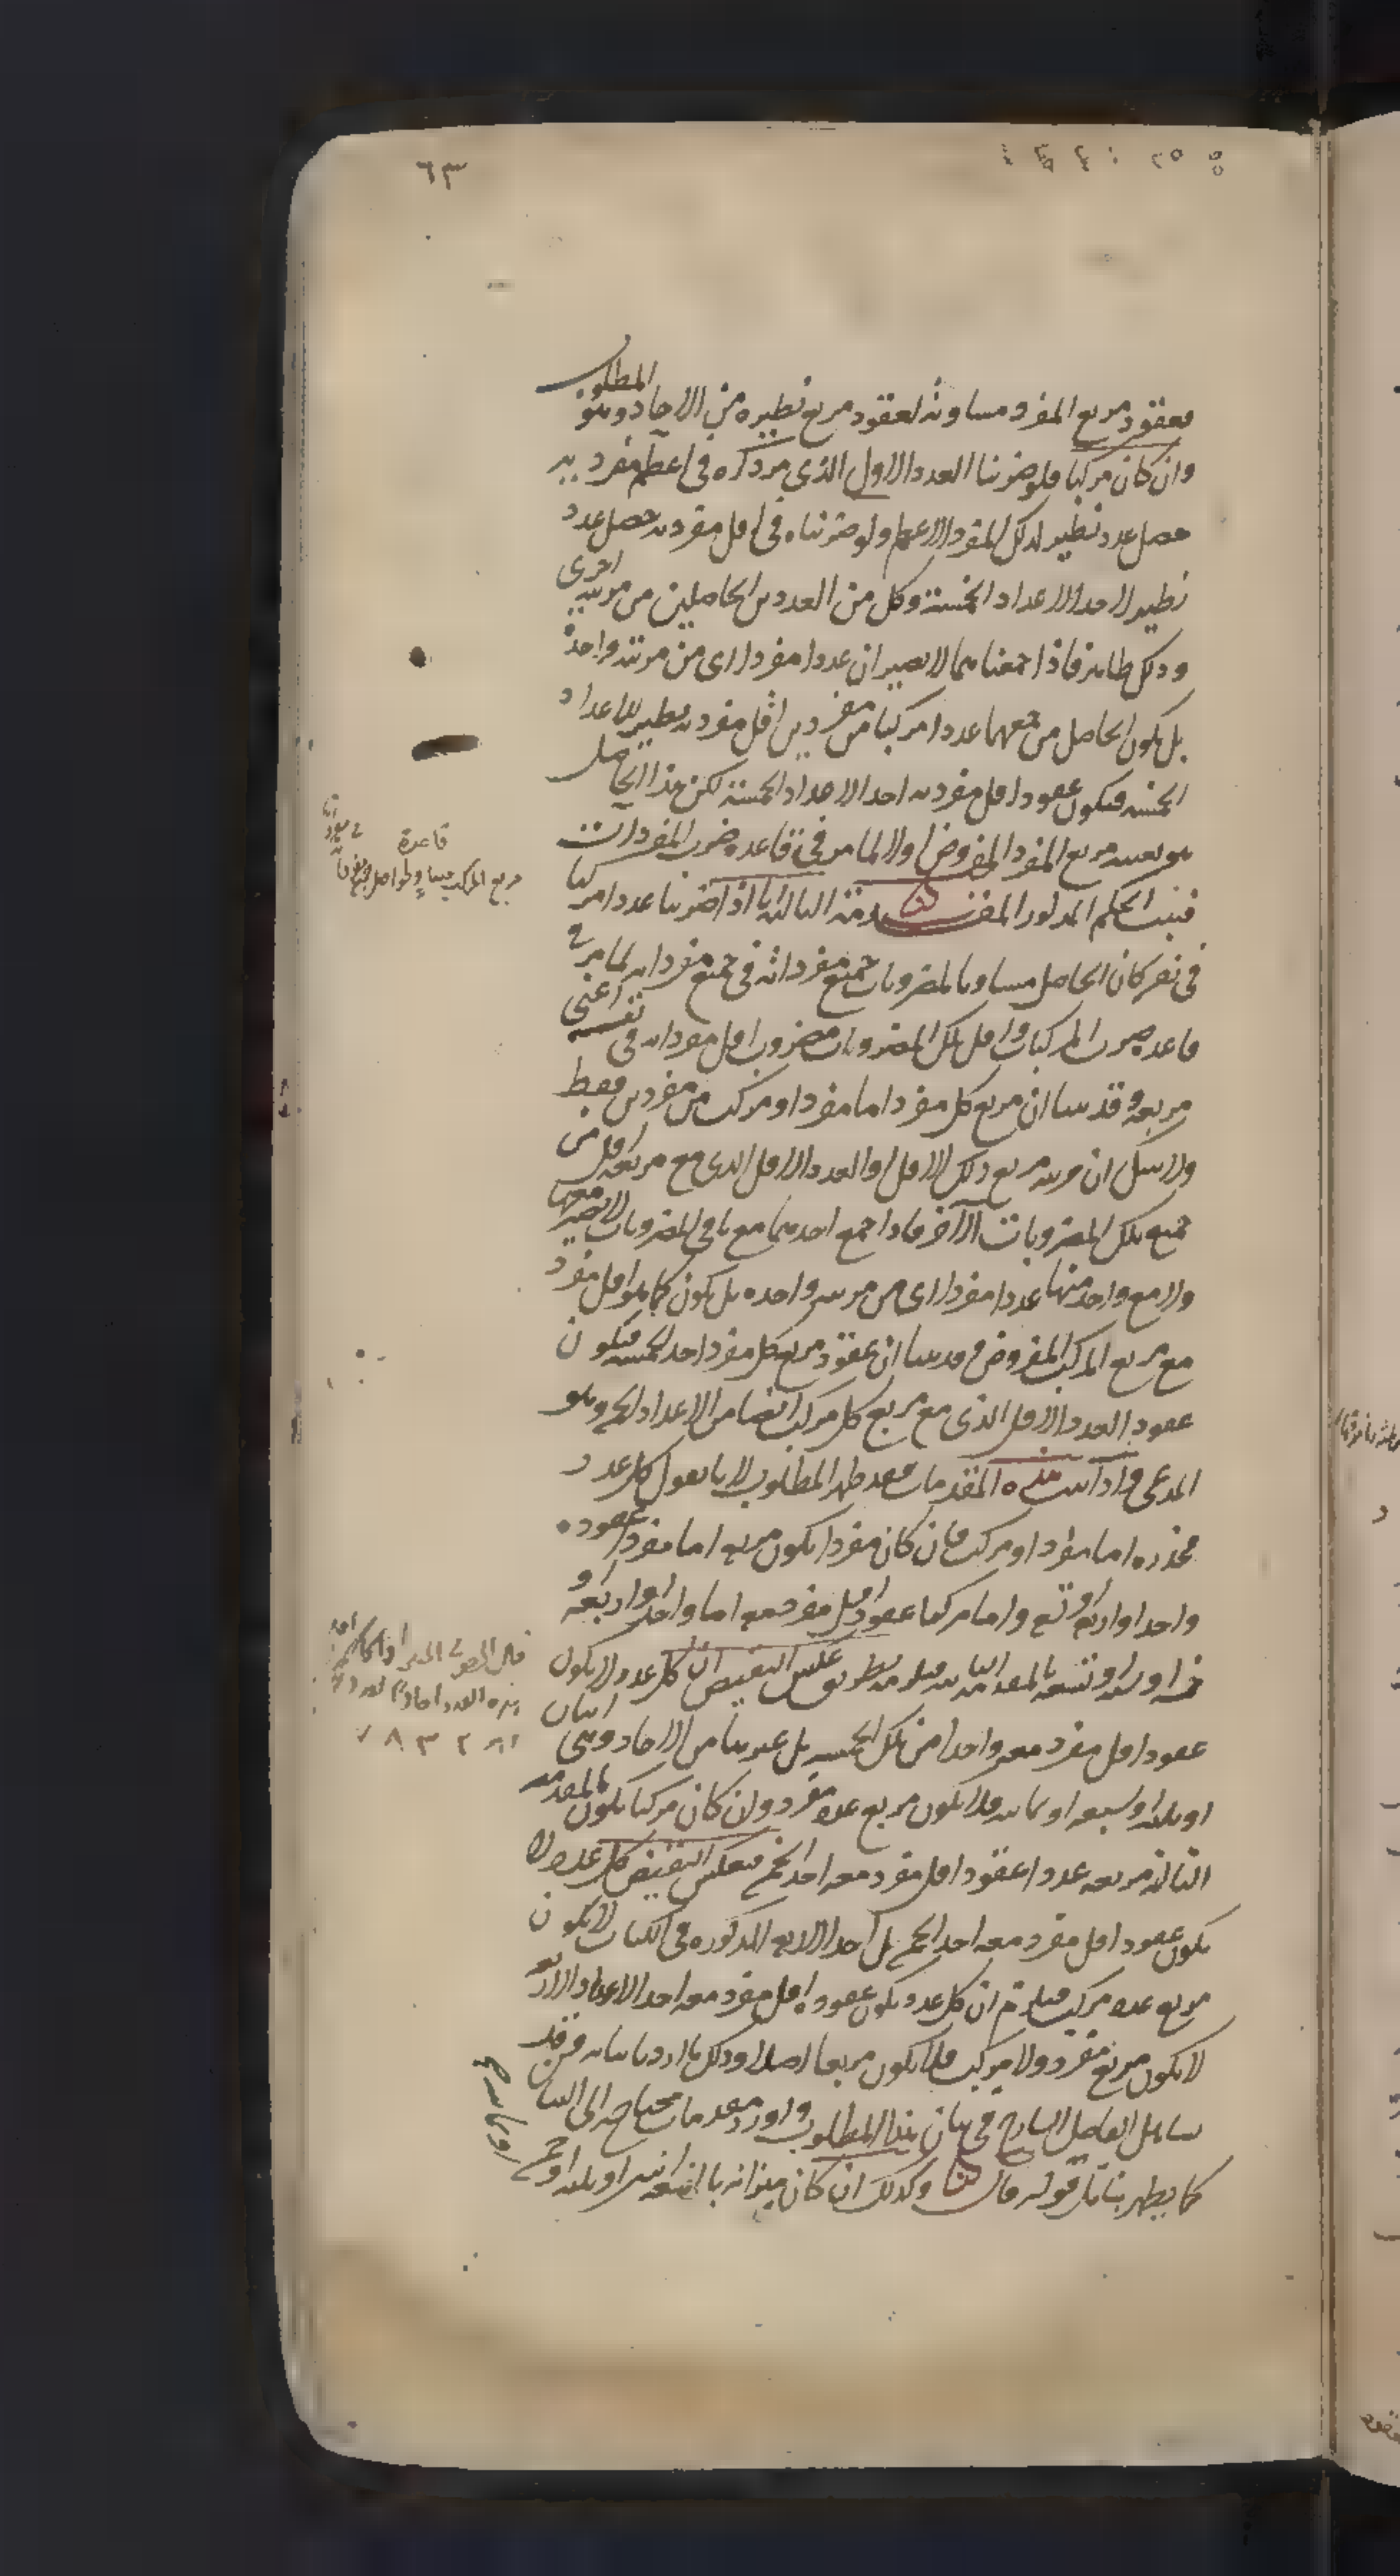 ٦٣
فعقود مربع المفرد مساوية لعقود مربع نظيره من الآحاد وهو المطلوب
وان كان مركبا فلو ضربنا العدد الاول الذي مر ذكره في اعظم مفرديه
حصل عدد نظير لذلك المفرد الاعظم ولو ضربناه في اقل مفرديه حصل عدد
نظير لاحد الاعداد الخمسة وكل من العددين الحاصلين من مرتبة اخرى
وذلك ظاهر فاذا جمعناهما لا يصيران عددا مفردا اى من مرتبة واحدة
بل يكون الحاصل من جمعهما عددا مركبا من مفردين اقل مفرديه نظير للاعداد
الخمسة فيكون عقود اقل مفرديه احد الاعداد الخمسة لكن هذا الحاصل
هو بعينه مربع المفرد المفروض اولا لما مر في قاعدة ضرب المفردات
فثبت الحكم المذكور المقدمة الثالثة انا اذا ضربنا عددا مركبا
في نفسه كان الحاصل مساويا لمضروبات جميع مفرداته في جميع مفرداته لما مر في
قاعدة ضرب المركبات واقل تلك المضروبات مضروب اقل مفرداته في نفسه اعنى
مربعه وقد بينا ان مربع كل مفرد اما مفرد او مركب من مفردين فقط
ولا شك ان مرتبة مربع ذلك الاقل او العدد الاقل الذى مع مربعه اقل من
جميع تلك المضروبات الآخر فاذا جمع احدهما مع باقى المضروبات لا يصير معها
ولا مع واحد منها عددا مفردا اى من مرتبة واحدة بل يكون كما هو اقل مفرد
مع مربع المركب المفروض وقد بينا ان عقود مربع كل مفرد احد الخمسة فيكون
عقود العدد الاقل الذى مع مربع كل مركب ايضا من الاعداد الخمسة وهو
المدعى واذا ثبت هذه المقدمات فقد ظهر المطلوب لانا نقول كل عدد
مجذوره اما مفرد او مركب فان كان مفردا يكون مربعه اما مفردا عقوده
واحدا او اربعة او تسعة واما مركبا عقود اقل مفرد معه اما واحدا او اربعة او
خمسة او ستة او تسعة بالمقدمة الثانية فيلزمه بطريق عكس النقيض ان كل عدد لا يكون
عقود اقل مفرد معه واحدا من تلك الخمسة بل غيرها من الآحاد وهى اثنان
او ثلثة او سبعة او ثمانية فلا يكون مربع عدد مفرد وان كان مركبا يكون بالمقدمة
الثالثة مربعه عددا عقود اقل مفرد معه احد الخمسة فبعكس النقيض كل عدد لا
يكون عقود اقل مفرد معه احد الخمسة بل احد الاربعة المذكورة في الكتاب لا يكون
مربع عدد مركب فيلزم ان كل عدد يكون عقود اقل مفرد معه احد الاعداد الاربعة
لا يكون مربع مفرد ولا مركب فلا يكون مربعا اصلا وذلك ما اردنا بيانه وقد
تساهل الفاضل الشارح في بيان هذا المطلوب واورد مقدمات محتاجة الى البيان
كما يظهر بتأمل قوله قال وكذلك ان كان ميزانه باثنين او ثلثة او خمسة
قاعدة
مربع المركب مساو لحواصل